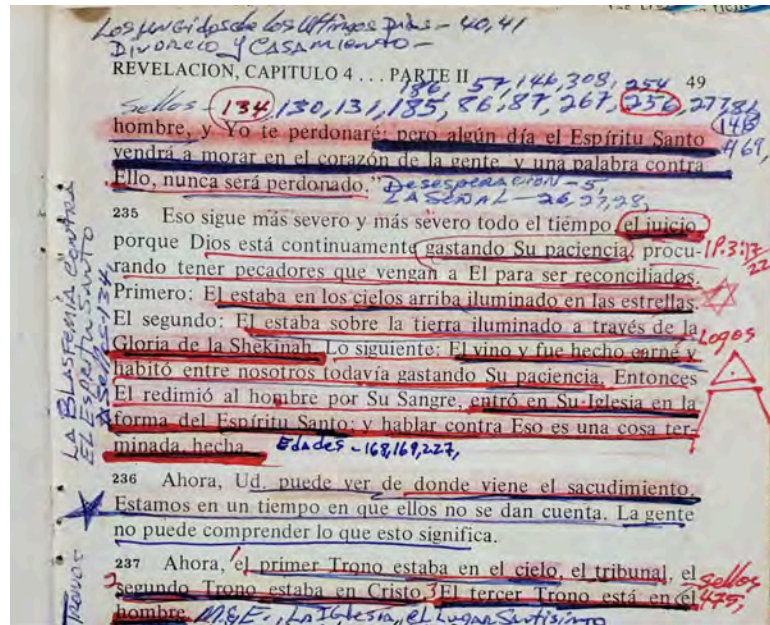 Los ungidos de los Ultimos Dias - 40,41
DIVORCIO y CASAMIENTO -
REVELACION, CAPITULO 4 . . . PARTE II 49
186, 57, 146, 308, 254
Sellos - 134, 130, 131, 185, 86, 87, 267, 256, 277,
hombre, y Yo te perdonaré; pero algún día el Espíritu Santo
vendrá a morar en el corazón de la gente, y una palabra contra 469,
Ello, nunca será perdonado." Desesperacion - 5,
LA SEÑAL - 26,27,28,
235 Eso sigue más severo y más severo todo el tiempo, el juicio,
porque Dios está continuamente gastando Su paciencia, procu-
rando tener pecadores que vengan a El para ser reconciliados.
Primero: El estaba en los cielos arriba iluminado en las estrellas.
El segundo: El estaba sobre la tierra iluminado a través de la
Gloria de la Shekinah. Lo siguiente: El vino y fue hecho carne y
habitó entre nosotros todavía gastando Su paciencia. Entonces
El redimió al hombre por Su Sangre, entró en Su Iglesia en la
forma del Espíritu Santo; y hablar contra Eso es una cosa ter-
minada, hecha. Edades - 168,169,227,
236 Ahora, Ud. puede ver de donde viene el sacudimiento.
Estamos en un tiempo en que ellos no se dan cuenta. La gente
no puede comprender lo que esto significa.
237 Ahora, el primer Trono estaba en el cielo, el tribunal, el
segundo Trono estaba en Cristo, 3 El tercer Trono está en el
hombre. M.G.E., LA Iglesia, el LUGAR Santisimo
1P.3:17
22
Logos
Sellos
475,
LA BLASFEMIA CONTRA
EL ESPIRITU SANTO
Sellos-134
Tronos